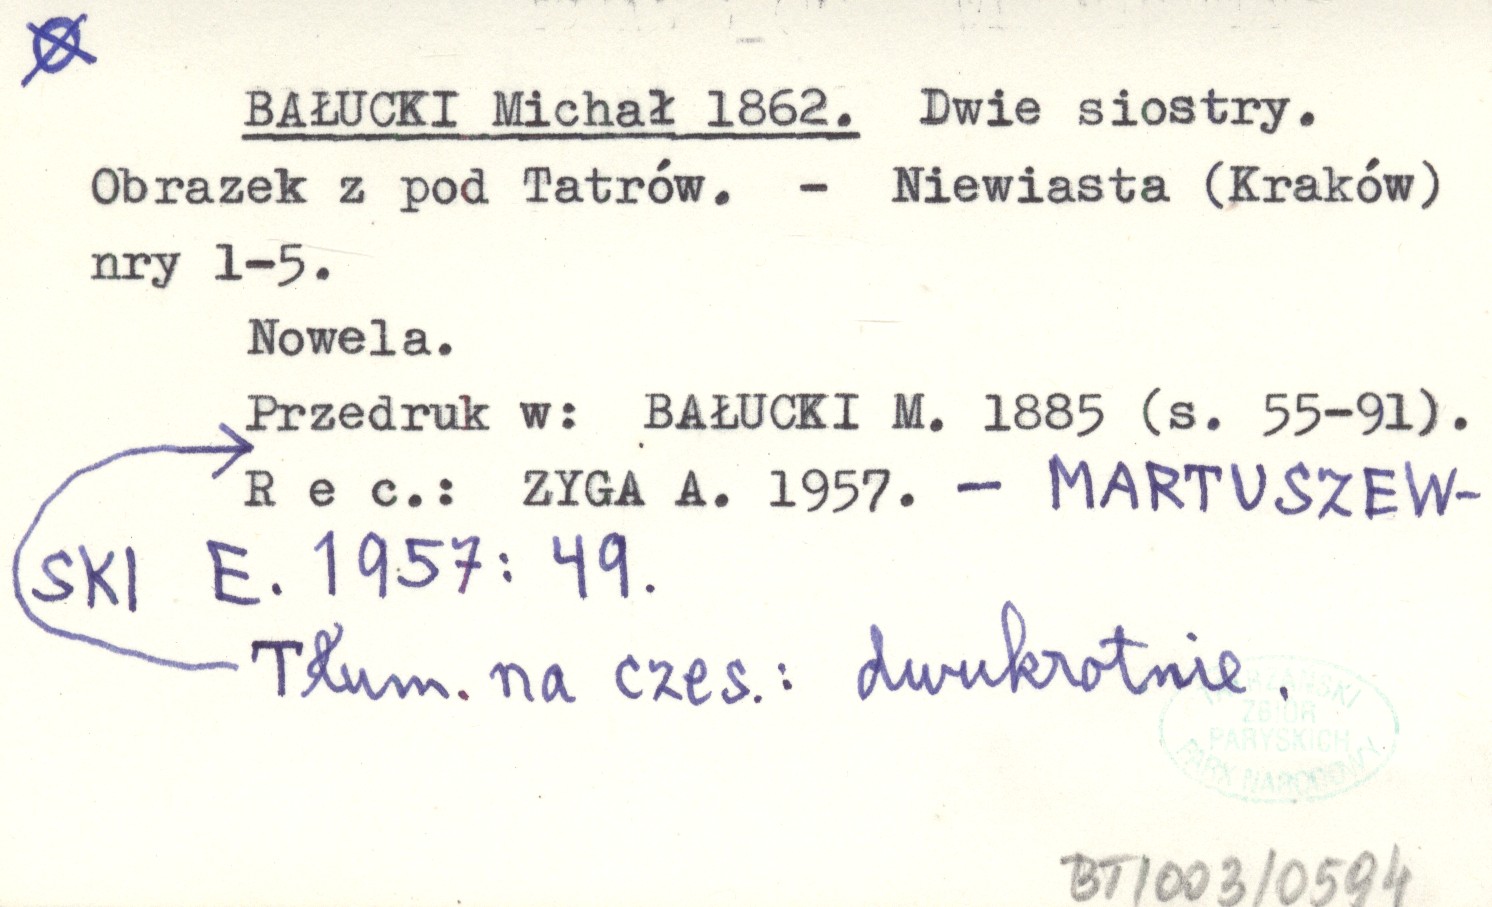 BAŁUCKI Michał 1862. Dwie siostry.
Obrazek z pod Tatrów. - Niewiasta (Kraków)
nry 1-5.
Nowela.
Przedruk w: BAŁUCKI M. 1885 (s. 55-91).
R e c.: ZYGA A. 1957. - MARTUSZEW-
SKI E. 1957: 49.
Tłum. na czes.: dwukrotnie.
TATRZAŃSKI
ZBIÓR
PARYSKICH
PARK NARODOWY
BT/003/0594